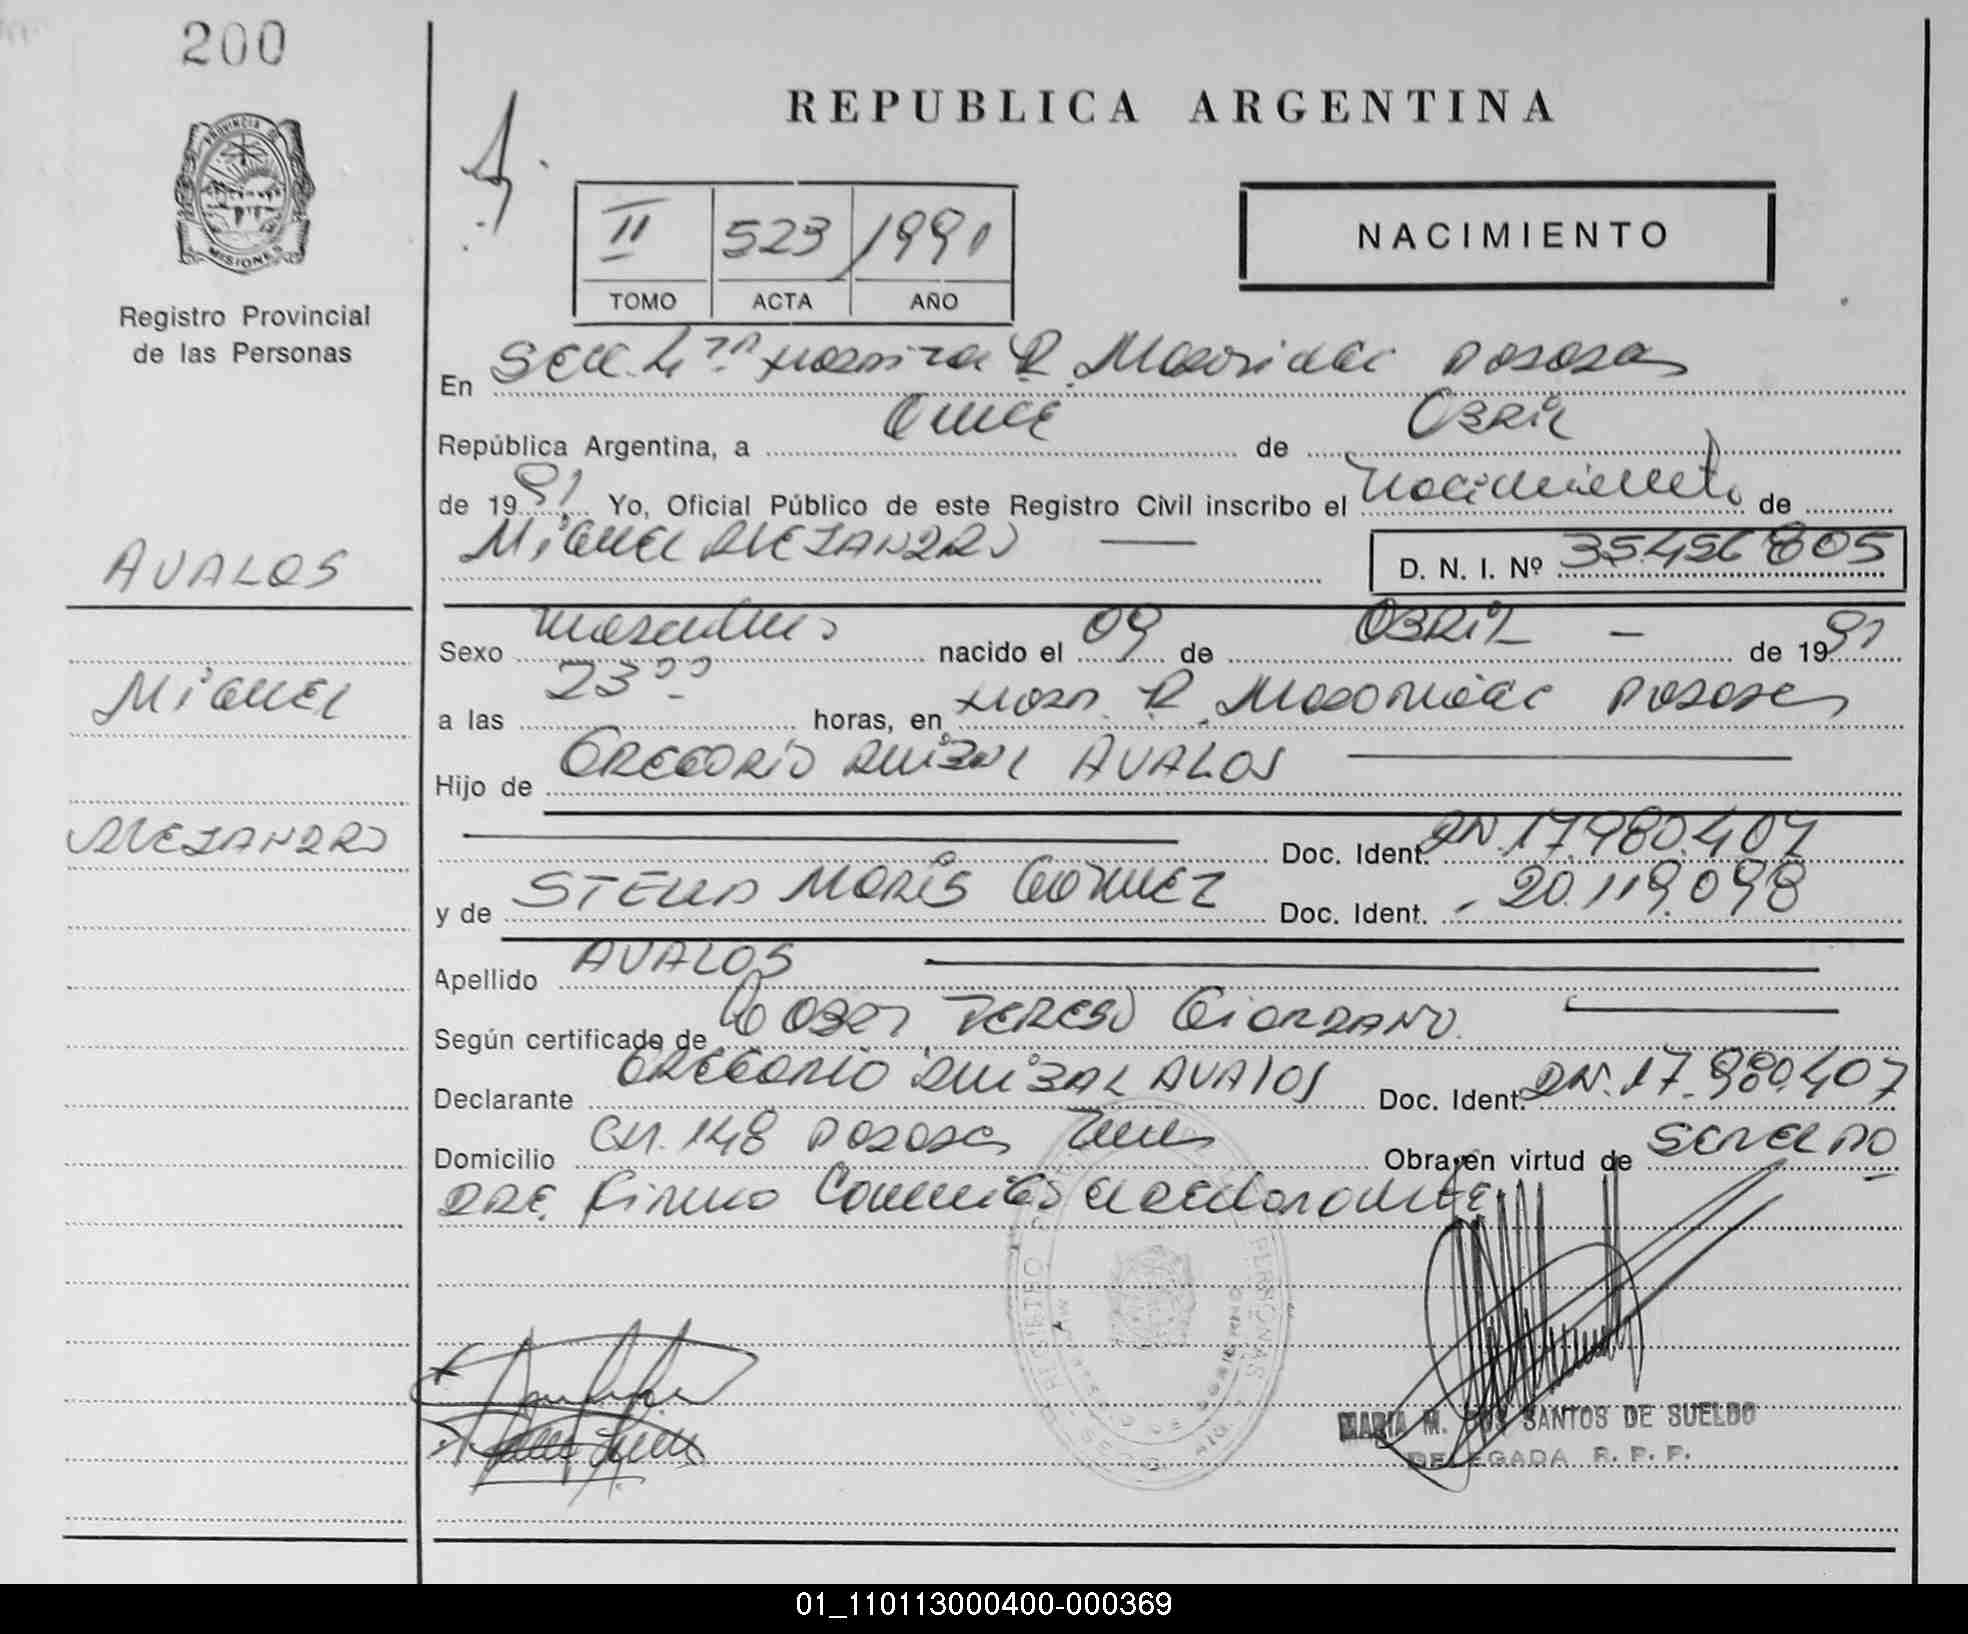 200
REPUBLICA ARGENTINA
PROVINCIA DE
MISIONES
Registro Provincial
de las Personas
II 523 1991
TOMO ACTA AÑO
NACIMIENTO
En Secc. 4ta Hospital R. Madariaga Posadas
República Argentina, a Quince de Abril
de 1991 Yo, Oficial Público de este Registro Civil inscribo el nacimiento de
AVALOS
Miguel Alejandro
D. N. I. Nº 35.456.805
Sexo masculino nacido el 09 de Abril de 1991
Miguel
a las 23 horas, en Hosp. R. Madariaga Posadas
Hijo de Gregorio Anibal AVALOS
Alejandro
Doc. Ident. DN. 17.980.407
y de Stella Maris Gomez Doc. Ident. 20.119.098
Apellido AVALOS
Según certificado de Teresa Giordano
Declarante Gregorio Anibal Avalos Doc. Ident. DN. 17.980.407
Domicilio CH. 148 Posadas Obra en virtud de
Firma Conmigo el declarante
REGISTRO PERSONAS
MINISTERIO DE GOBIERNO
MARIA M. DOS SANTOS DE SUELDO
DELEGADA R. P. P.
01_110113000400-000369